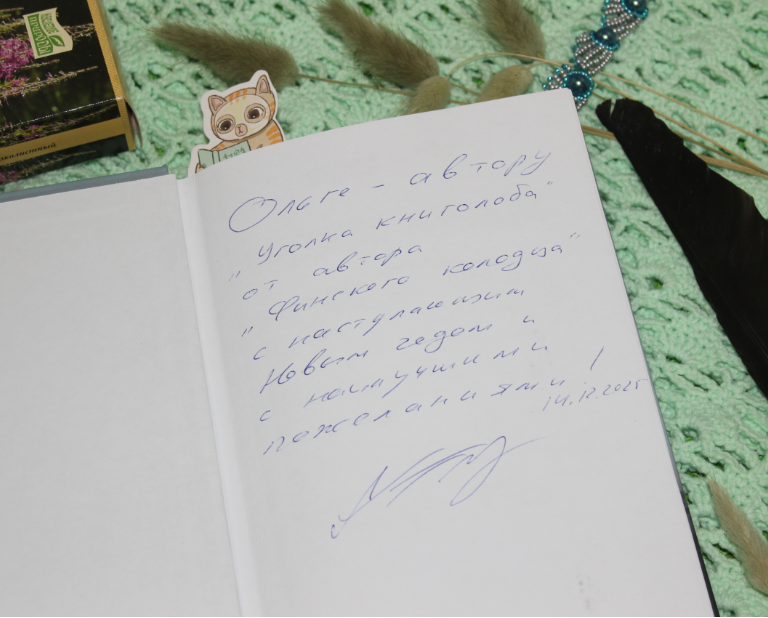 Ольге - автору
"Уголка книголюба"
от автора
"Финского колодца"
с наступающим
Новым годом и
с наилучшими
пожеланиями!
14.12.2025